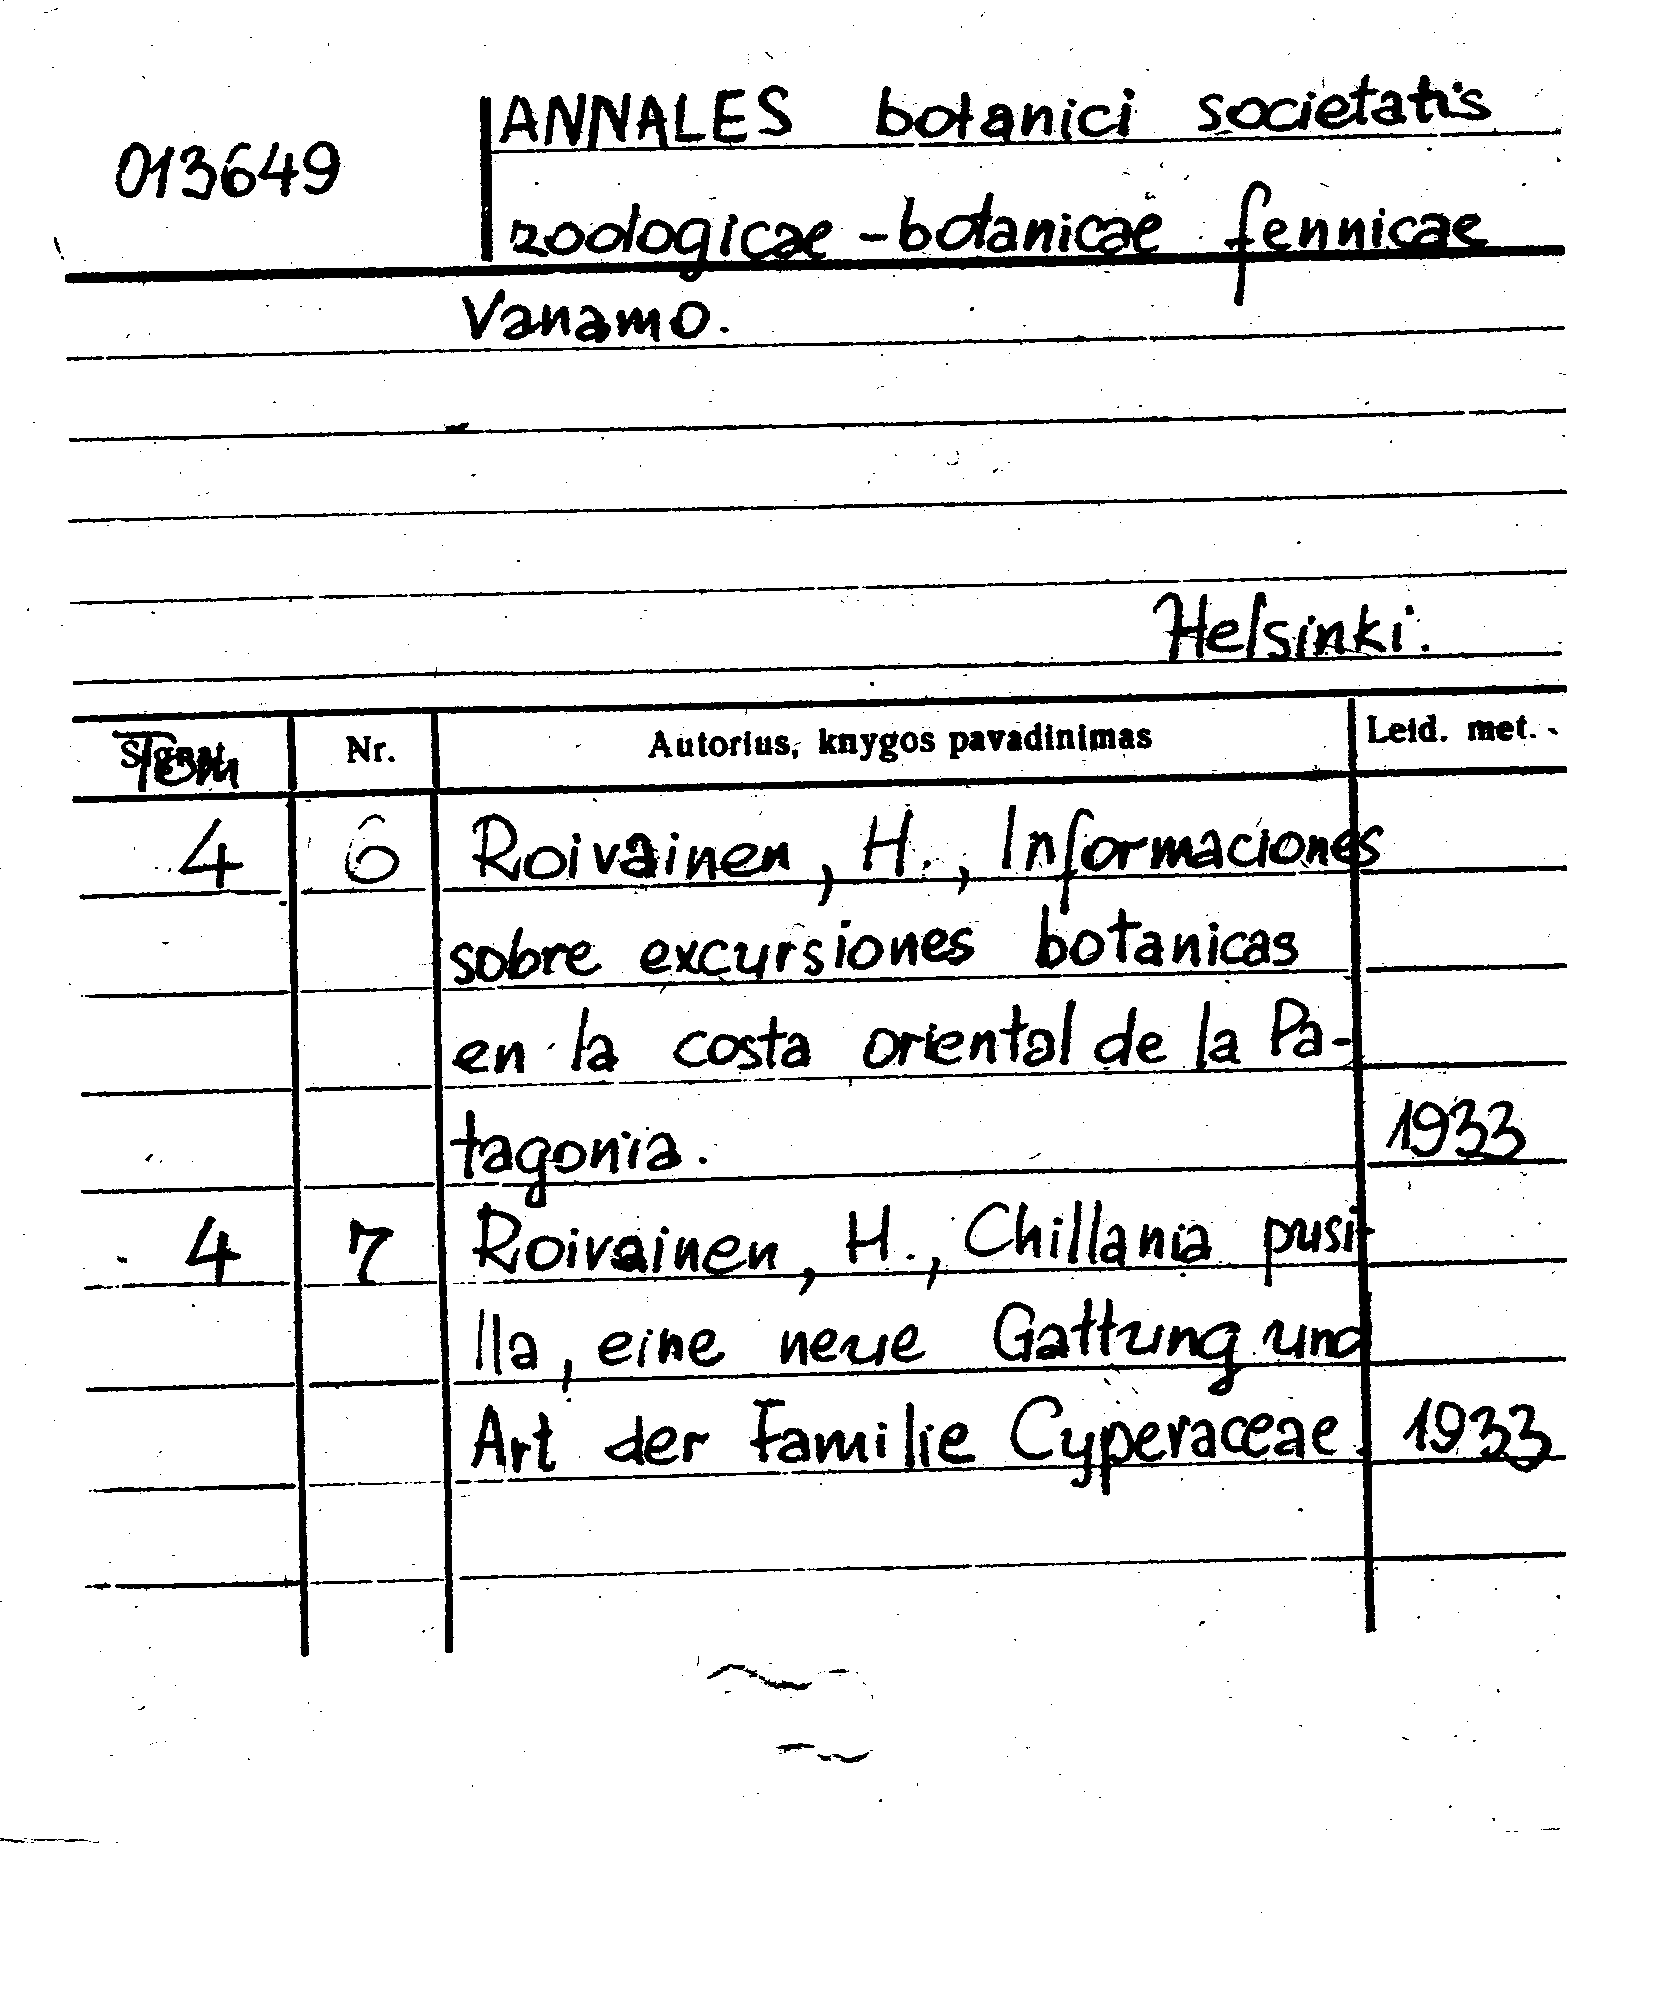 ANNALES botanici societatis
013649
zoologicae-botanicae fennicae
Vanamo.
Helsinki.
Signat. Tom Nr. Autorius, knygos pavadinimas Leid. met.
4 6 Roivainen, H., Informaciones
sobre excursiones botanicas
en la costa oriental de la Pa-
tagonia. 1933
4 7 Roivainen, H., Chillania pusi-
lla, eine neue Gattung und
Art der Familie Cyperaceae. 1933